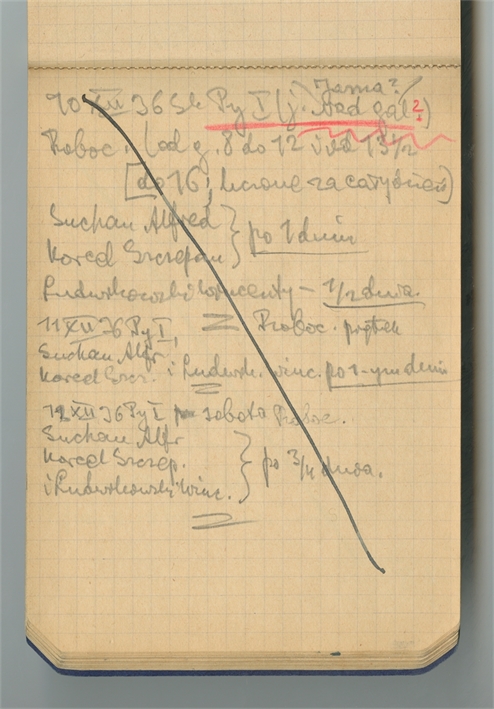 Jama?
10 XII 36 Sk Py I (j. nad gal?)
Roboc. (od g. 8 do 12 i od 13 1/2
[do 16, liczone za cały dzień)
Suchan Alfred
Korcel Szczepan } po 1 dniu
Ludwikowski Wincenty – 1/2 dnia.
11 XII 36 Py I, Roboc. piątek
Suchan Alfr.
Korcel Szcz. i Ludwik. Winc. po 1-ym dniu
12 XII 36 Py I sobota Roboc.
Suchan Alfr
Korcel Szczep. } po 3/4 dnia.
i Ludwikowski Winc.